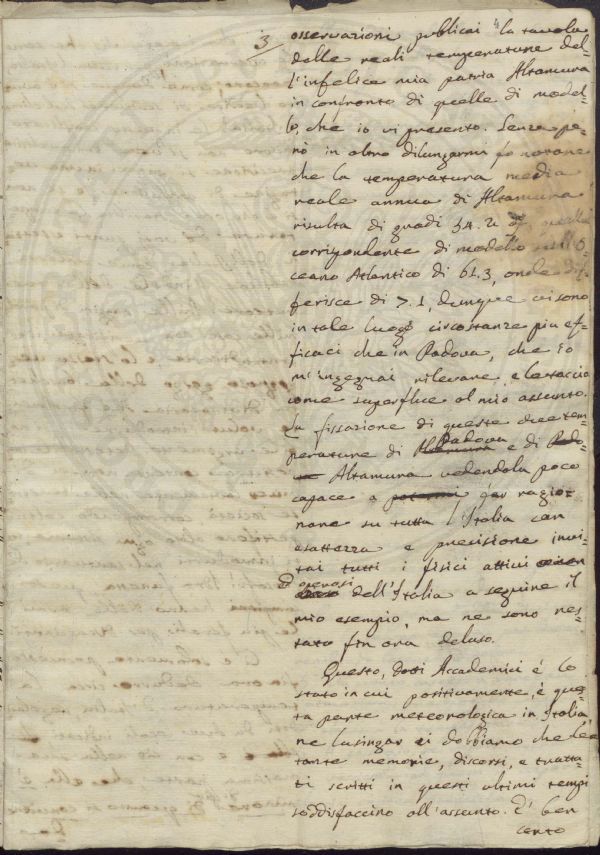 3
osservazioni publicai la tavola
delle reali temperature del-
l'infelice mia patria Altamura
in confronto di quelle di model-
lo, che io vi presento. Senza pe-
rò in oltre dilungarmi fo notare
che la temperatura media
reale annua di Altamura
risulta di gradi 54.2 e quella
corrispondente di modello sull'O-
ceano Atlantico di 61.3, onde dif-
ferisce di 7.1, dunque vi sono
in tale luogo circostanze piu ef-
ficaci che in Padova, che io
m'ingegnai rilevare, e le taccio
come superflue al mio assunto.
La fissazione di queste due tem-
perature di Altamura Padova e di Pado-
va Altamura vedendola poco
capace a potermi far ragio-
nare su tutta l'Italia con
esattezza e precisione invi-
tai tutti i fisici attivi
ed operosi dell'Italia a seguire il
mio esempio, ma ne sono res-
tato fin ora deluso.
Questo, dotti Accademici è lo
stato in cui positivamente, è ques-
ta parte meteorologica in Italia,
ne lusingar ci dobbiamo che le
tante memorie, discorsi, e tratta-
ti scritti in questi ultimi tempi
soddisfaccino all'assunto. E' ben
certo